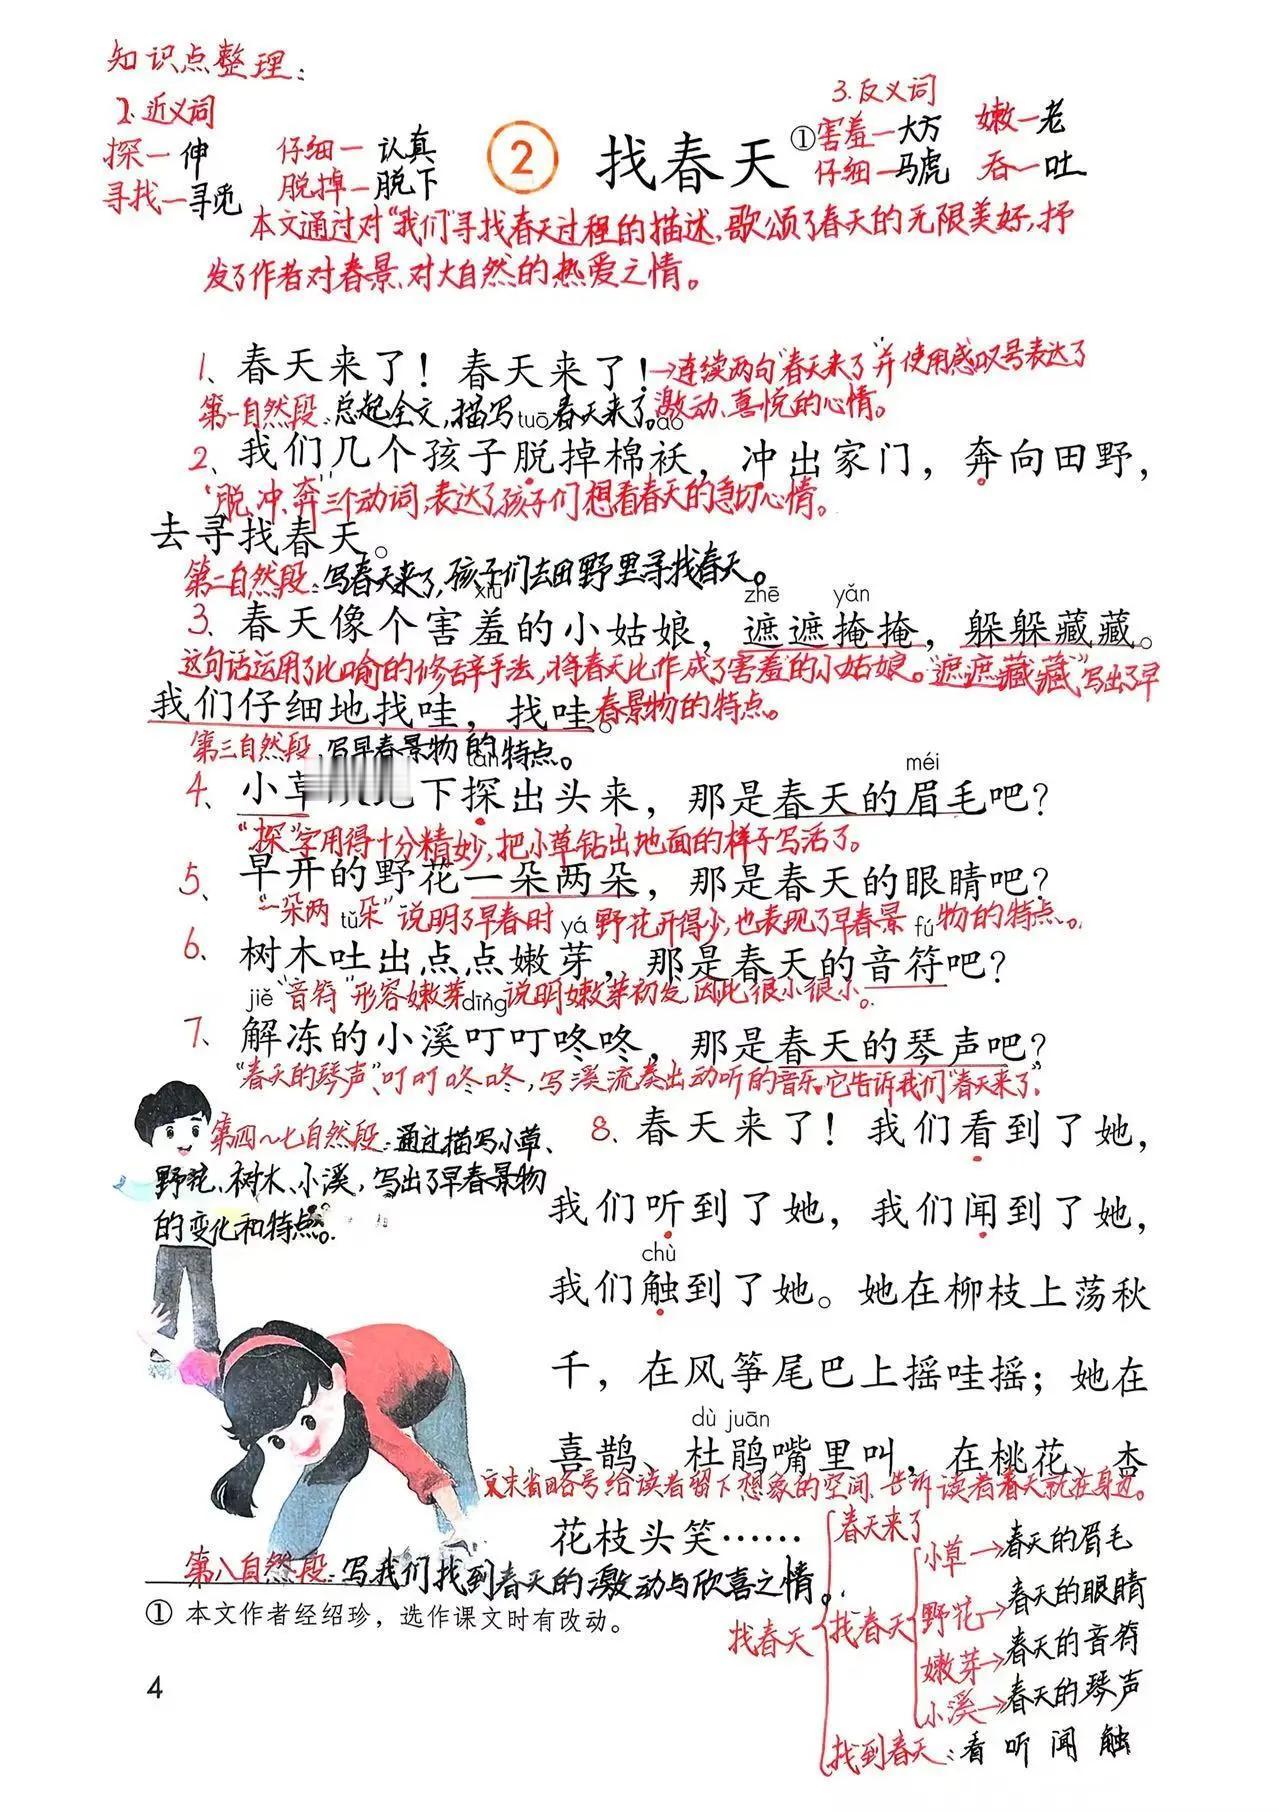 知识点整理:
2.近义词
探—伸 仔细—认真
寻找—寻觅 脱掉—脱下
② 找春天①
3.反义词
害羞—大方 嫩—老
仔细—马虎 吞—吐
本文通过对“我们”寻找春天过程的描述,歌颂了春天的无限美好,抒
发了作者对春景、对大自然的热爱之情。
1、春天来了！春天来了！→连续两句“春天来了”并使用感叹号表达了
激动、喜悦的心情。
第一自然段:总起全文,描写春天来了。
tuō ǎo
2、我们几个孩子脱掉棉袄，冲出家门，奔向田野，
“脱、冲、奔”三个动词,表达了孩子们想看春天的急切心情。
去寻找春天。
第二自然段:写春天来了,孩子们去田野里寻找春天。
xiū zhē yǎn
3、春天像个害羞的小姑娘，遮遮掩掩，躲躲藏藏。
这句话运用了比喻的修辞手法,将春天比作成了害羞的小姑娘。“遮遮藏藏”写出了早
春景物的特点。
我们仔细地找哇，找哇。
第三自然段,写早春景物的特点。
tàn méi
4、小草 下探出头来，那是春天的眉毛吧？
“探”字用得十分精妙,把小草钻出地面的样子写活了。
5、早开的野花一朵两朵，那是春天的眼睛吧？
“一朵两朵”说明了早春时野花开得少,也表现了早春景物的特点。
tǔ yá fú
6、树木吐出点点嫩芽，那是春天的音符吧？
“音符”形容嫩芽说明嫩芽初发,因此很小很小。
jiě dīng
7、解冻的小溪叮叮咚咚，那是春天的琴声吧？
“春天的琴声”、叮叮咚咚,写溪流奏出动听的音乐。它告诉我们“春天来了”
第四~七自然段:通过描写小草、
野花、树木、小溪,写出了早春景物
的变化和特点。
8、春天来了！我们看到了她，
我们听到了她，我们闻到了她，
chù
我们触到了她。她在柳枝上荡秋
千，在风筝尾巴上摇哇摇；她在
dù juān
喜鹊、杜鹃嘴里叫，在桃花、杏
文末省略号给读者留下想象的空间,告诉读者春天就在身边。
花枝头笑……
第八自然段:写我们找到春天的激动与欣喜之情。
① 本文作者经绍珍，选作课文时有改动。
找春天
春天来了
找春天
小草→春天的眉毛
野花→春天的眼睛
嫩芽→春天的音符
小溪→春天的琴声
找到春天:看听闻触
4